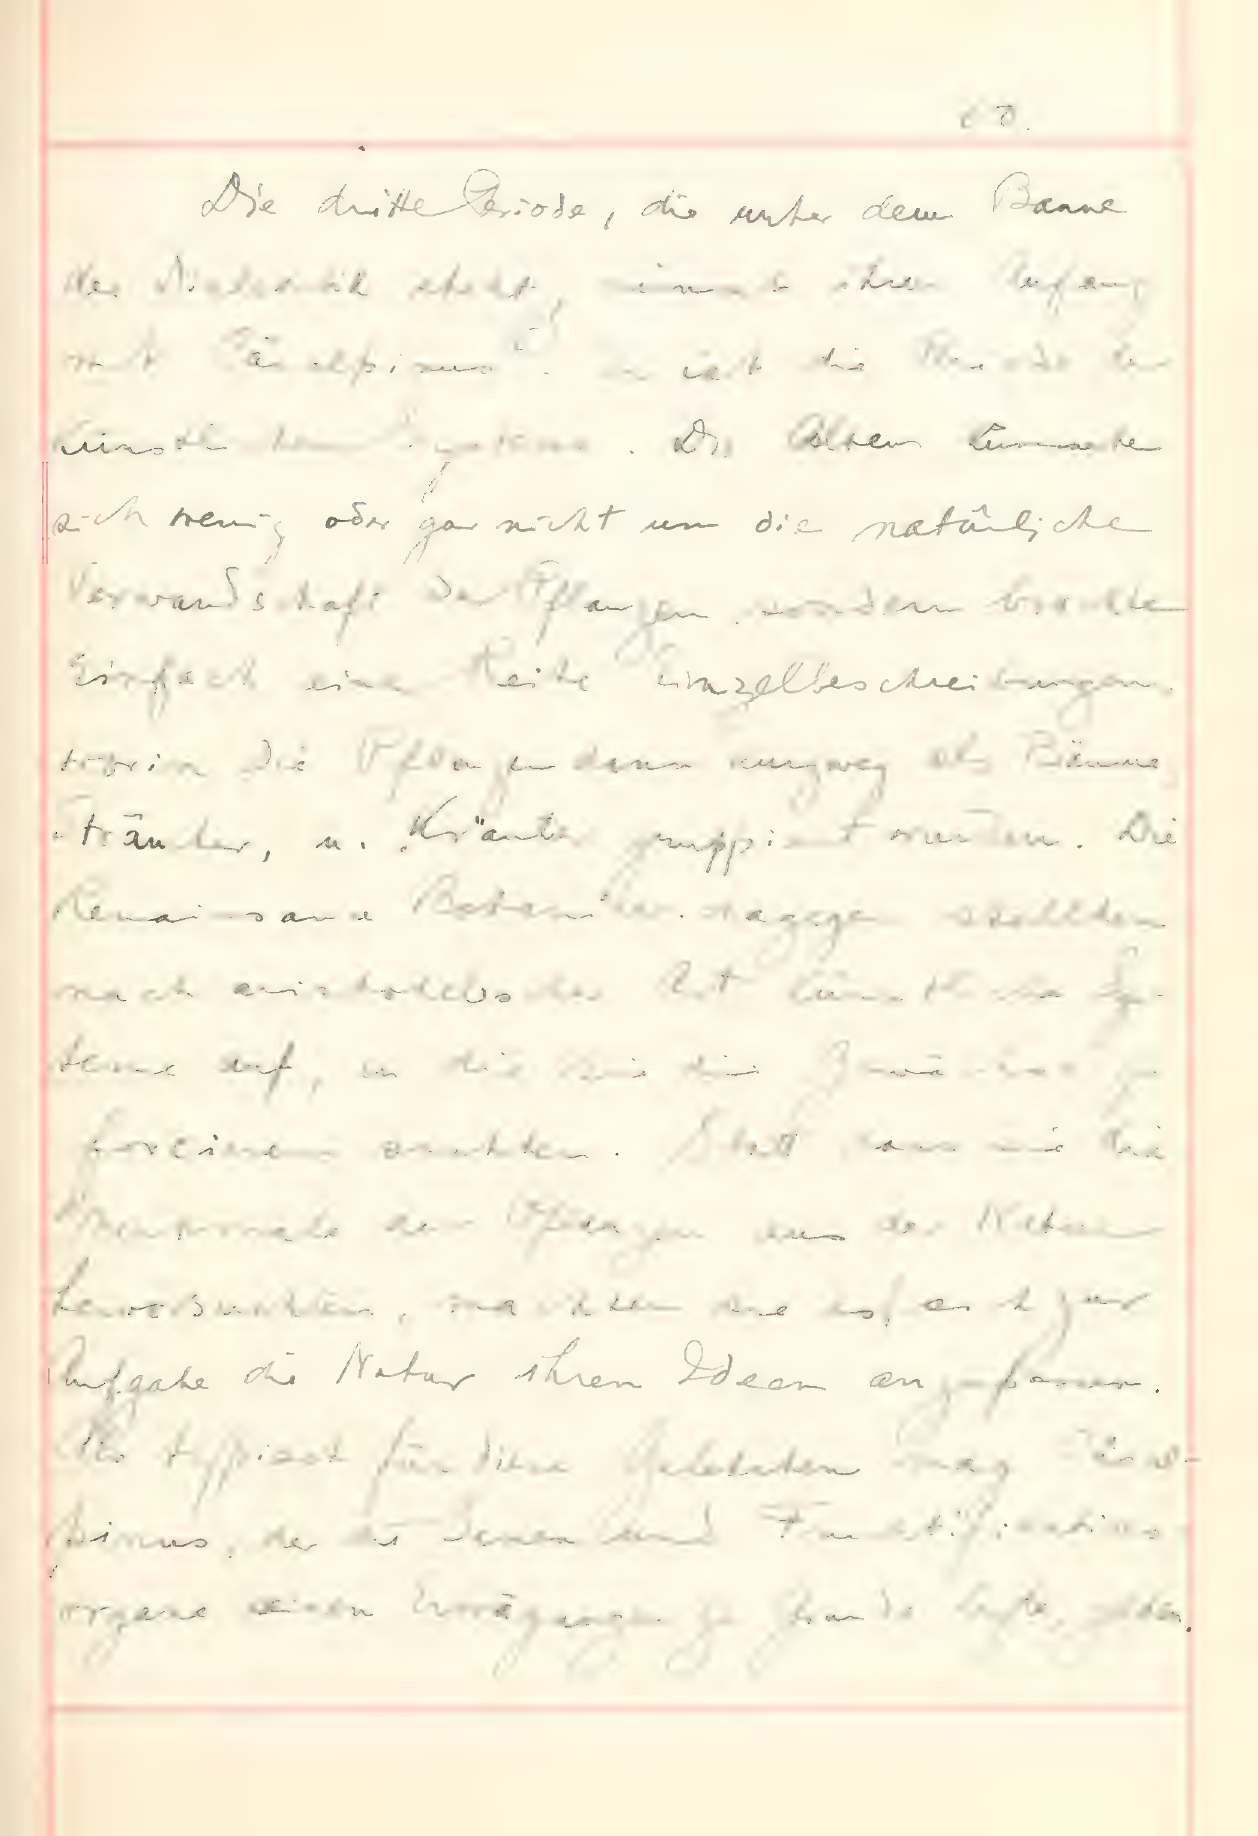 60.
Die dritte Periode, die unter dem Banne
der Dialektik steht, nimmt ihren Anfang
mit Cäsalpinus. Es ist die Periode der
künstlichen Systeme. Die Alten kümmerten
sich wenig oder gar nicht um die natürliche
Verwandschaft der Pflanzen sondern brachten
einfach eine Reihe Einzelbeschreibungen,
worin die Pflanzen dann kurzweg als Bäume,
Sträucher, u. Kräuter gruppiert wurden. Die
Renaissance Botaniker dagegen stellten
nach aristotelischer Art künstliche Sy-
steme auf, in die sie die Gewächse zu
forcieren suchten. Statt dass sie die
Merkmale der Pflanzen aus der Natur
heraussuchten, machten sie es sich zur
Aufgabe die Natur ihren Ideen anzupassen.
Als typisch für diese Gelehrten mag Cäsal-
pinus, der die Samen und Fructifications-
organe seinen Erwägungen zu Grunde legte, gelten.